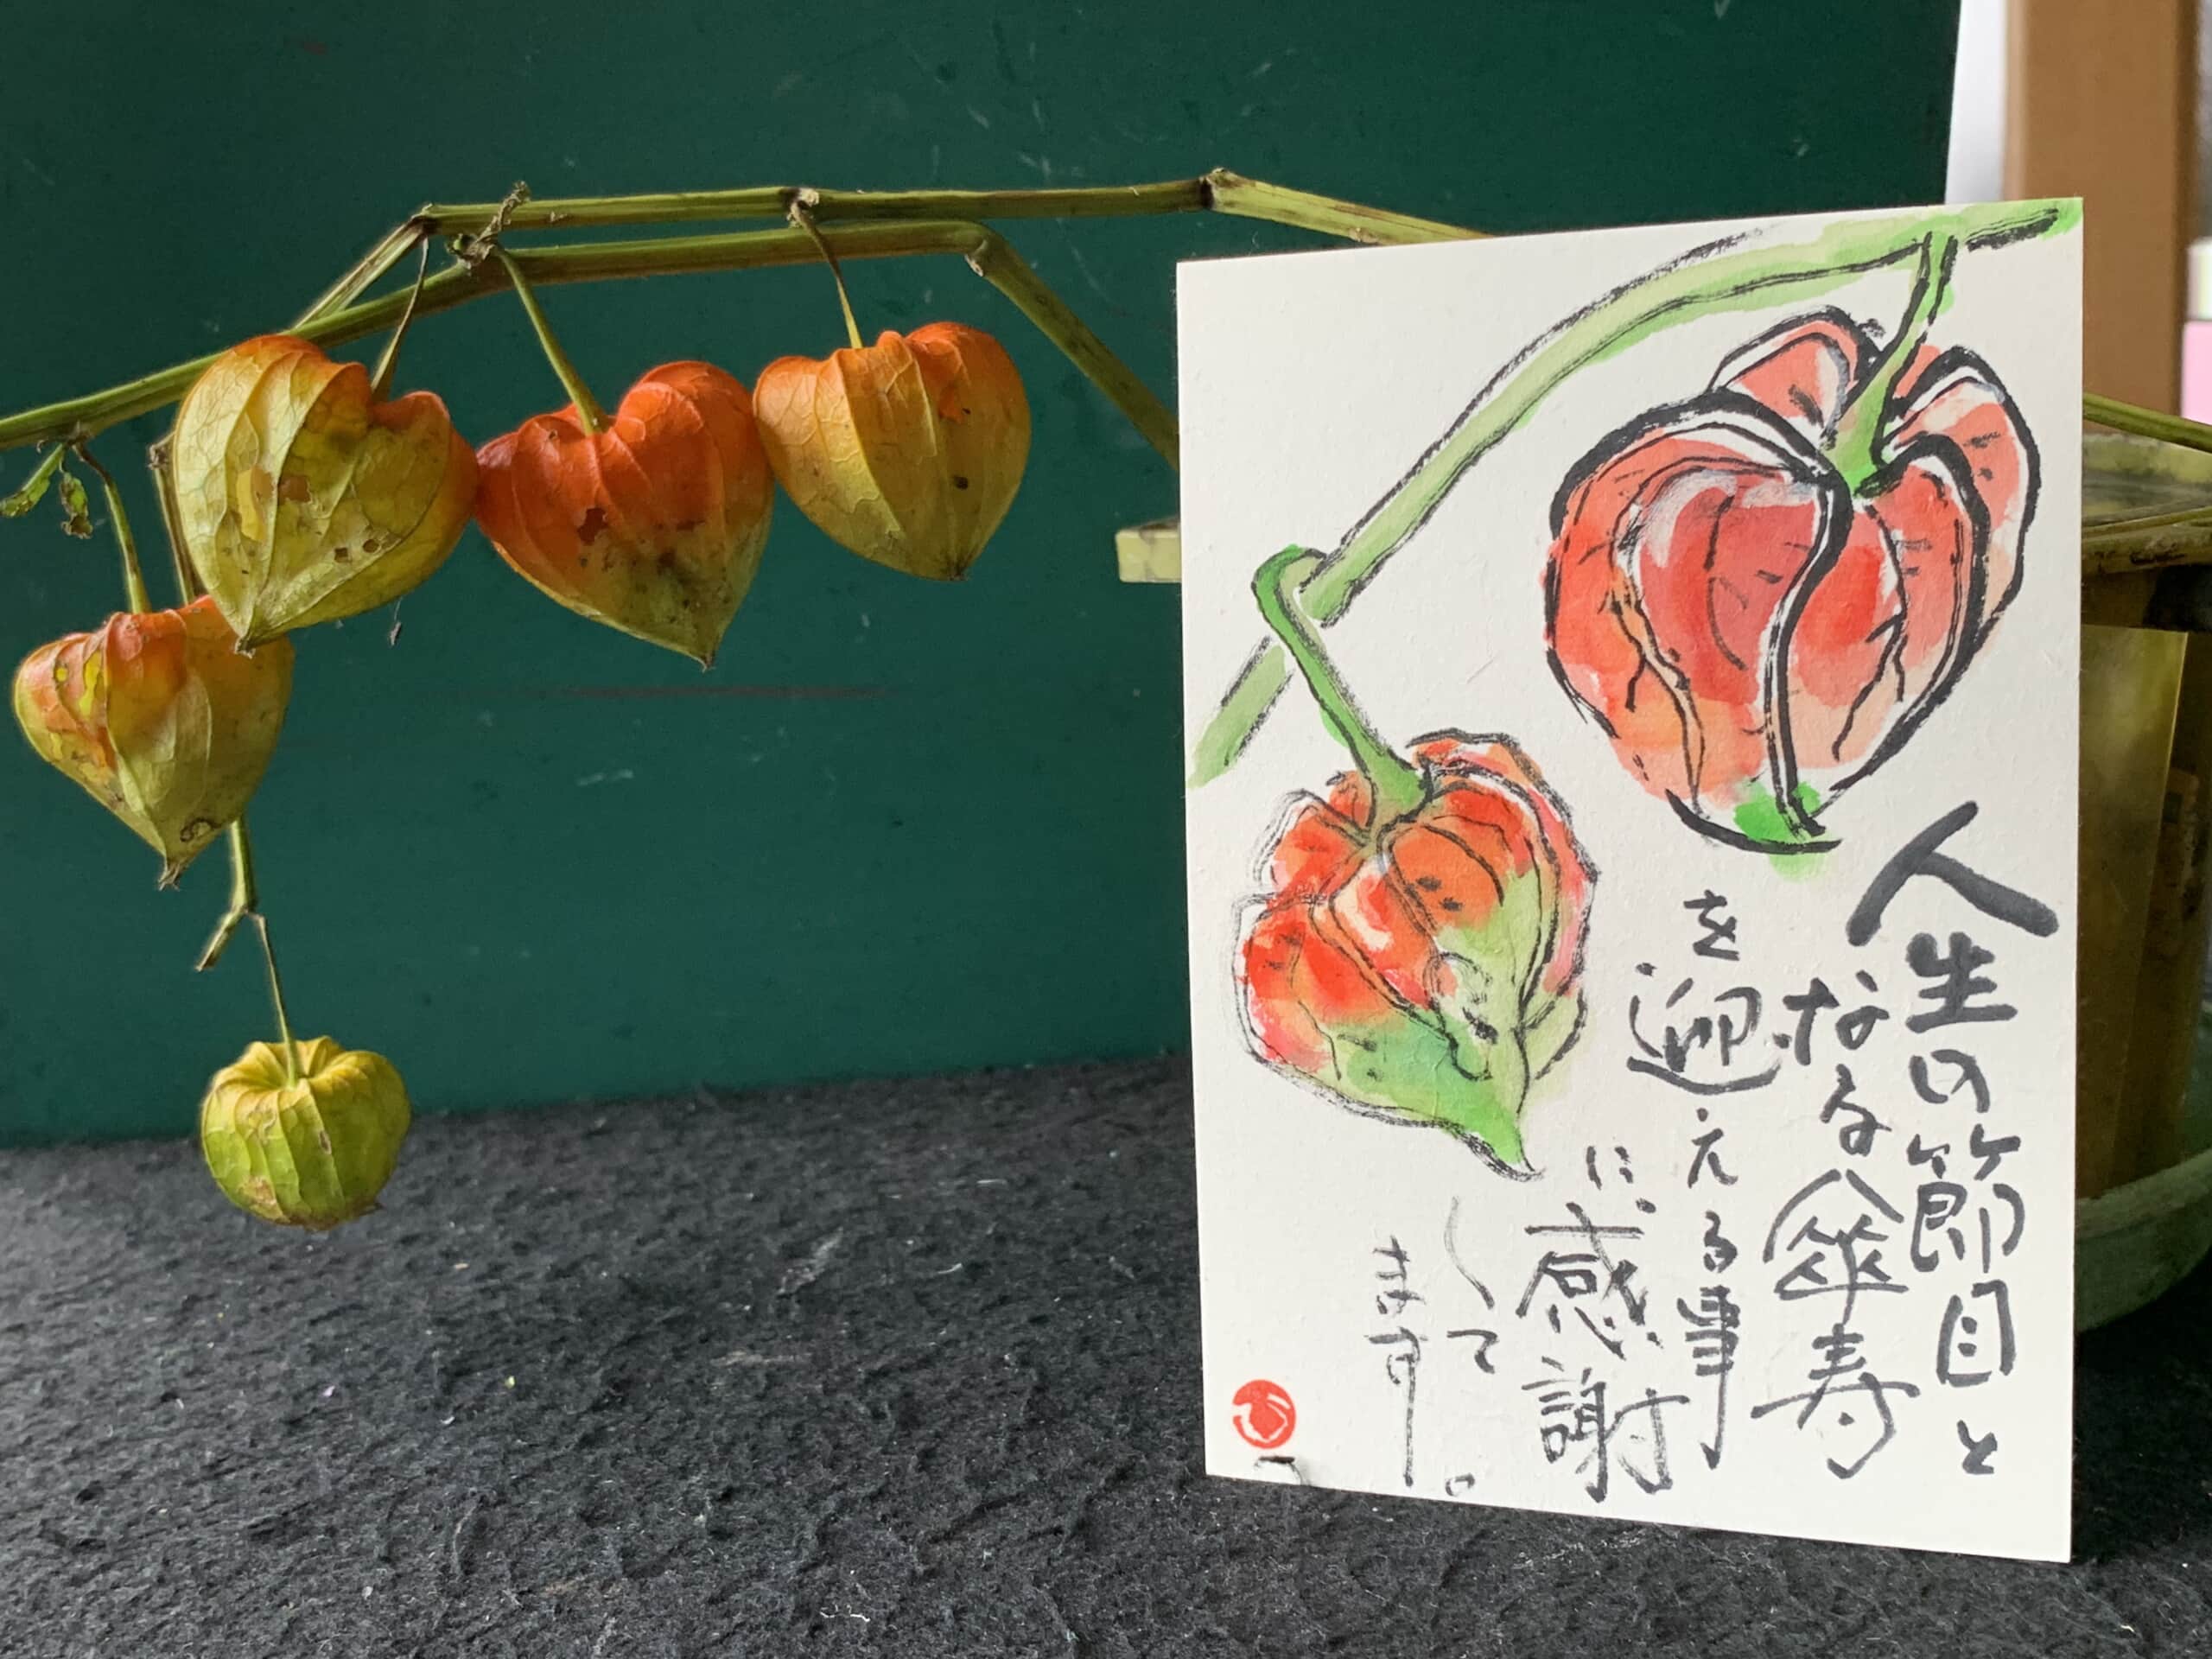 人生の節目と
なる傘寿
を迎える事
に感謝
して
ます。